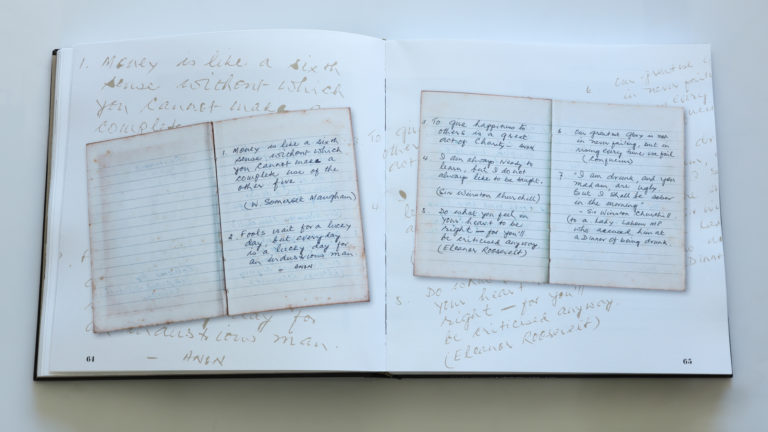 1. Money is like a sixth
sense without which
you cannot make a
complete
an industrious man.
- ANON
1. Money is like a sixth
sense, without which
you cannot make a
complete use of the
other five.
(W. Somerset Maugham)
2. Fools wait for a lucky
day, but everyday
is a lucky day for
an industrious man
- ANON
64
3. To give happiness to
others is a great
act of Charity -
4. I am always ready to
learn, but I do not
always like to be taught.
(Sir Winston Churchill)
5. Do what you feel in
your heart to be
right - for you'll
be criticised anyway.
(Eleanor Roosevelt)
6 Our greatest glory is not
in never failing, but in
rising every time we fail
(Confucius)
7. "I am drunk, and you
Madam, are ugly.
But I shall be sober
in the morning"
- Sir Winston Churchill
(to a Lady Labour MP
who accused him at
a Dinner of being drunk.
6 Our greatest
in never
every
Dinner
5. Do what
your heart
right - for you'll
be criticised anyway.
(Eleanor Roosevelt)
65